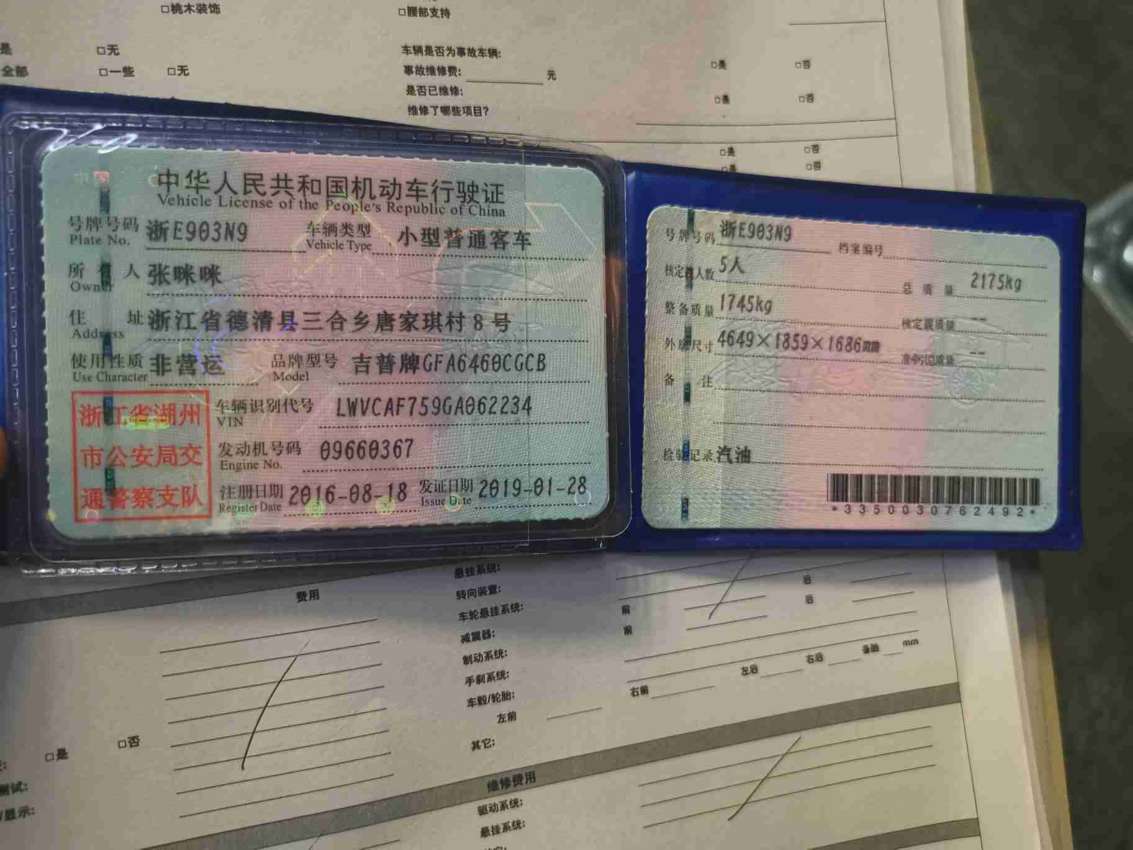 □桃木装饰
□腰部支持
是
□无
车辆是否为事故车辆:
□是
□否
全部
□一些
□无
事故维修费:
元
是否已维修:
□是
□否
维修了哪些项目?
□是
□否
□是
□否
中华人民共和国机动车行驶证
Vehicle License of the People's Republic of China
号牌号码 浙E903N9 车辆类型 小型普通客车
Plate No. Vehicle Type
所有人 张咪咪
Owner
住址 浙江省德清县三合乡唐家琪村8号
Address
使用性质 非营运 品牌型号 吉普牌GFA6460CGCB
Use Character Model
浙江省湖州
市公安局交
通警察支队
车辆识别代号 LWVCAF759GA062234
VIN
发动机号码 09660367
Engine No.
注册日期 2016-08-18 发证日期 2019-01-28
Register Date Issue Date
号牌号码 浙E903N9 档案编号
核定载人数 5人 总质量 2175kg
整备质量 1745kg 核定载质量 --
外廓尺寸 4649×1859×1686 --
备注
检验记录 汽油
*3350030762492*
费用
悬挂系统:
转向装置:
后
车轮悬挂系统:
前
后
减震器:
前
制动系统:
手刹系统:
车毂/轮胎:
右前
左后
右后
备胎
mm
左前
其它:
□是
□否
测试:
显示:
维修费用
驱动系统:
悬挂系统: